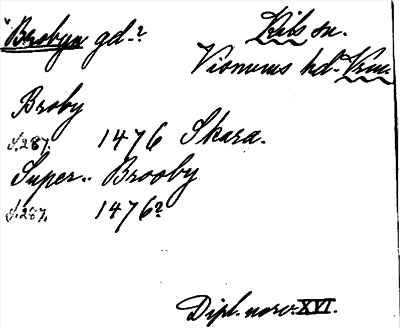 Brobyn gd.?
Kils sn.
Visnums hd. Vrm.
Broby
s. 287. 1476 Skara.
Super.. Brooby
s. 287. 1476?
Dipl. norv. XVI.